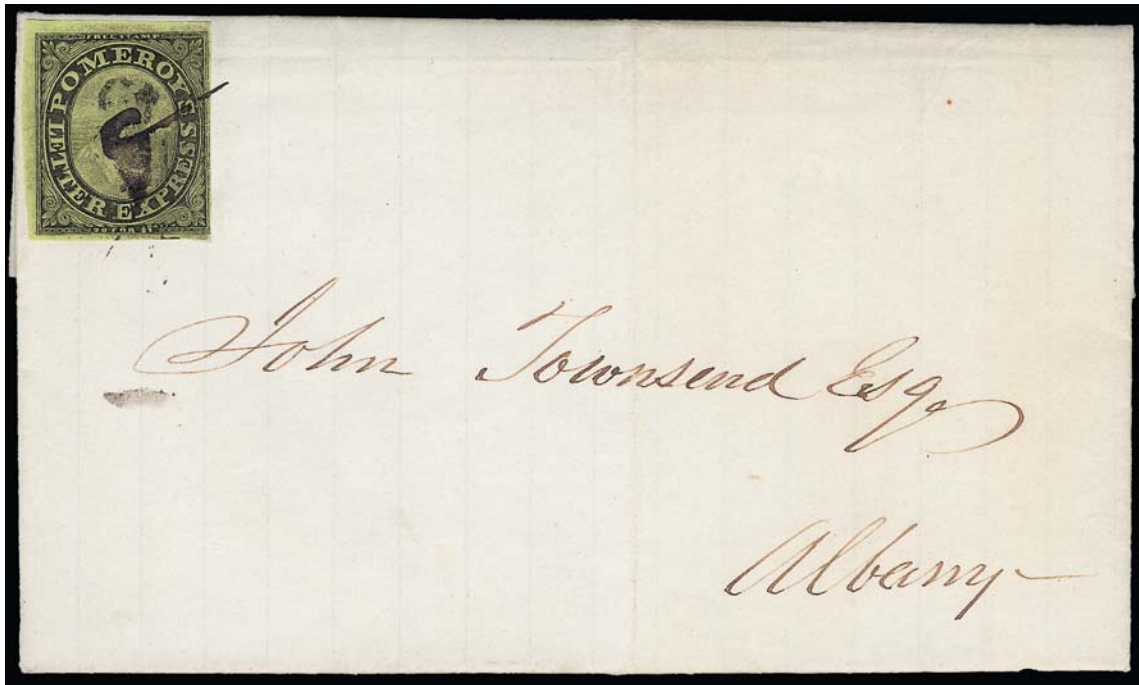 FREE STAMP
POMEROY'S
LETTER EXPRESS
20 FOR $1.
John Townsend Esq.
Albany